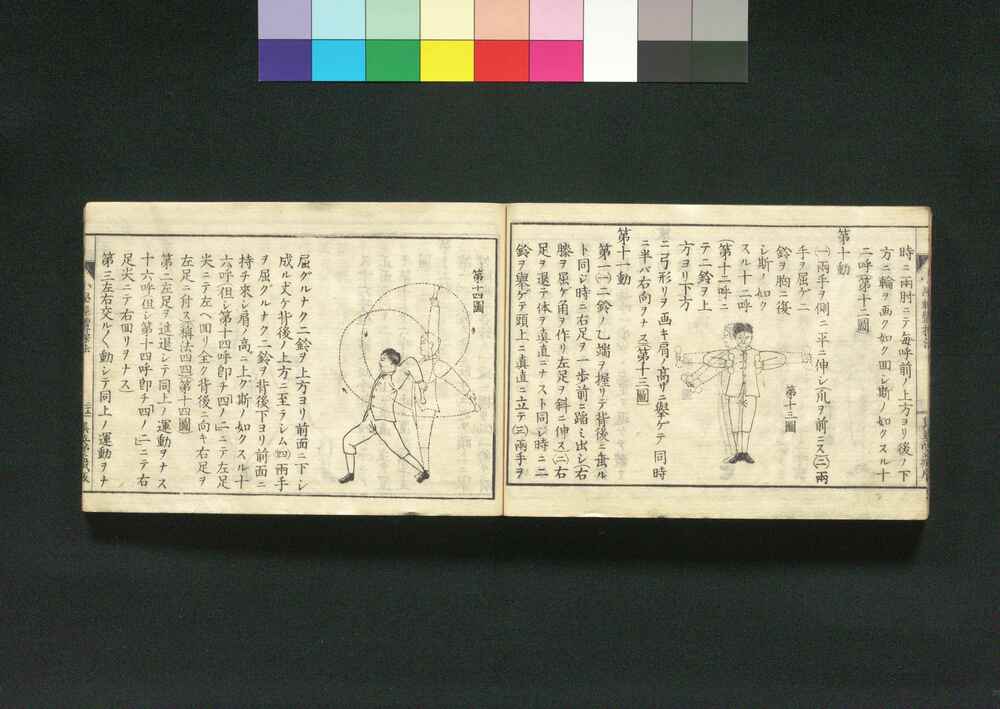 時ニ兩肘ニテ每呼前ノ上方ヨリ後ノ下
方ニ輪ヲ画ク如ク回シ斯ノ如クスル十
二呼(第十二圖)
第十動
(一)兩手ヲ側ニ平ニ伸シ(爪ヲ前ニス)(二)兩
手ヲ屈ゲ二
鈴ヲ胸ニ復
シ斯ノ如ク
スル十二呼
(第十二呼ニ
テ二鈴ヲ上
方ヨリ下方
第十三圖
ニ弓形リヲ画キ肩ノ高リニ擧ゲテ同時
ニ半バ右向ヲナス)(第十三圖)
第十一動
第一(一)二鈴ノ乙端ヲ握リテ背後ニ垂ル
ト同シ時ニ右足ヲ一歩前ニ踏ミ出シ(右
膝ヲ屈ゲ角ヲ作リ左足ヲ斜ニ伸ス)(二)右
足ヲ退テ体ヲ眞直ニナスト同シ時ニ二
鈴ヲ擧ゲテ頭上ニ眞直ニ立テ(三)兩手ヲ
第十四圖
屈グルナク二鈴ヲ上方ヨリ前面ニ下シ
成ル丈ケ背後ノ上方ニ至ラシム(四)兩手
ヲ屈グルナク二鈴ヲ背後下ヨリ前面ニ
持チ來シ肩ノ高ニ上ク斯ノ如クスル十
六呼(但シ第十四呼即チ四ノ「二」ニテ左足
尖ニテ左ヘ回リ全ク背後ニ向キ右足ヲ
左足ニ附ス)(積法四四)(第十四圖)
第二左足ヲ進退シテ同上ノ運動ヲナス
十六呼(但シ第十四呼即チ四ノ「二」ニテ右
足尖ニテ右回リヲナス)
第三左右交ル〱動シテ同上ノ運動ヲナ